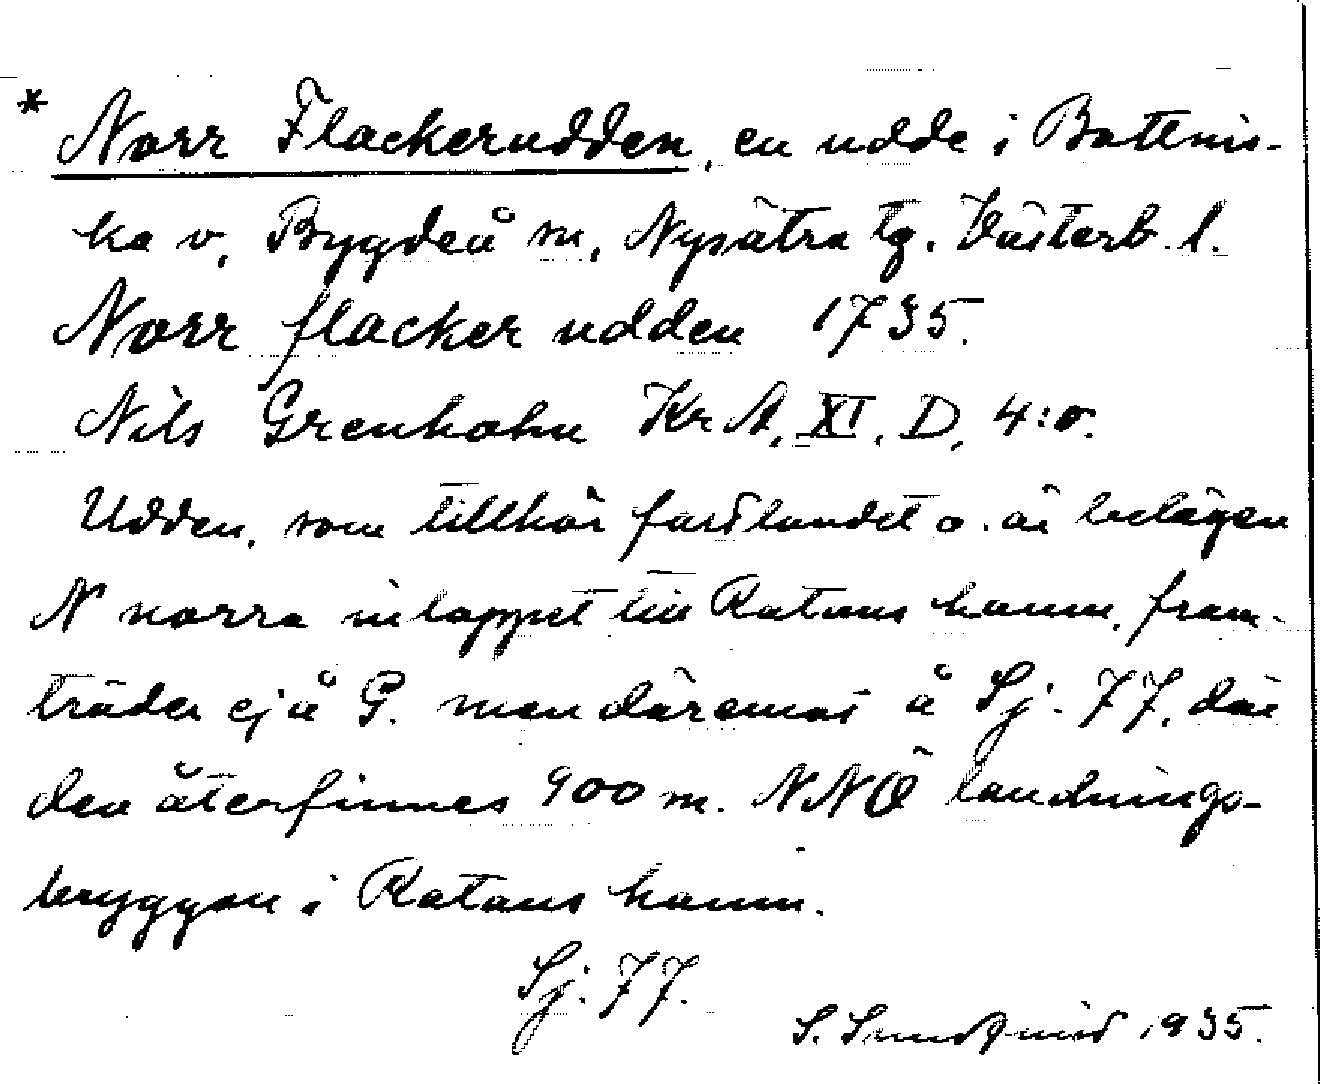 * Norr Flackerudden, en udde i Bottnis-
ka v, Bygdeå sn, Nysätra tg. Västerb. l.
Norr flacker udden 1735.
Nils Grenholm KrA, XI, D, 4:o.
Udden, som tillhör fastlandet o. är belägen
N norra inloppet till Ratans hamn, fram-
träder ej å G. men däremot å Sj. 77, där
den återfinnes 900 m. NNÖ landnings-
bryggan i Ratans hamn.
Sj. 77.
S. Sundqvist 1935.